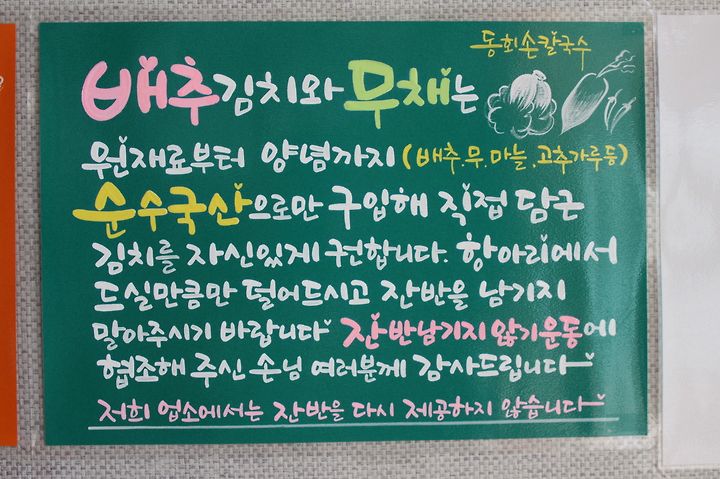 동회손칼국수
배추김치와 무채는
원재로부터 양념까지 (배추.무.마늘.고추가루등)
순수국산으로만 구입해 직접 담근
김치를 자신있게 권합니다. 항아리에서
드실만큼만 덜어드시고 잔반을 남기지
말아주시기 바랍니다 잔반남기지않기운동에
협조해 주신 손님 여러분께 감사드립니다
저희 업소에서는 잔반을 다시 제공하지 않습니다